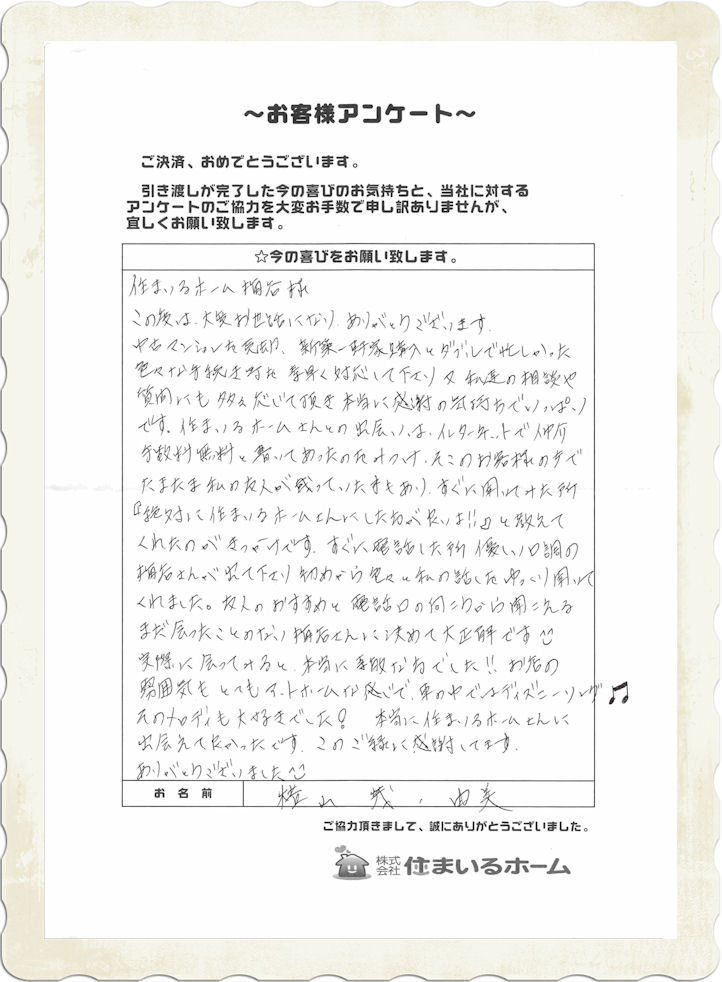 ~お客様アンケート~
ご決済、おめでとうございます。
引き渡しが完了した今の喜びのお気持ちと、当社に対する
アンケートのご協力を大変お手数で申し訳ありませんが、
宜しくお願い致します。
☆今の喜びをお願い致します。
住まいるホーム 様
この度は、大変お世話になり、ありがとうございます。
中古マンションを売却、新築一軒家購入とダブルで忙しかった
色々な手続き等を素早く対応して下さり又私達の相談や
質問にも 応じて頂き本当に感謝の気持ちでいっぱい
です。住まいるホームさんとの出会いは、インターネットで仲介
手数料無料と書いてあったのをみつけ、そこのお客様の声で
たまたま私の友人が載っていた事もあり、すぐに聞いてみた所
『絶対に住まいるホームさんにした方が良いよ!!』と教えて
くれたのがきっかけです。すぐに電話した所優しい口調の
さんが出て下さり初めから色々と私の話しをゆっくり聞いて
くれました。友人のおすすめと電話口の向こうから聞こえる
まだ会ったことのない さんに決めて大正解です
実際に会ってみると、本当に素敵な方でした!! お店の
雰囲気もとてもアットホームな感じで、車の中ではディズニーソング♫
そのメロディも大好きでした! 本当に住まいるホームさんに
出会えて良かったです。このご縁に感謝してます。
ありがとうございました
お名前
山 ・由美
ご協力頂きまして、誠にありがとうございました。
株式会社 住まいるホーム